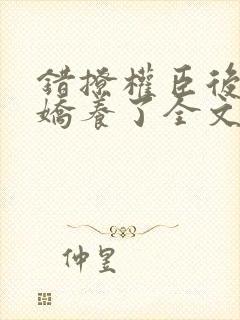 錯撩權臣後
嬌養了全文
仲昱